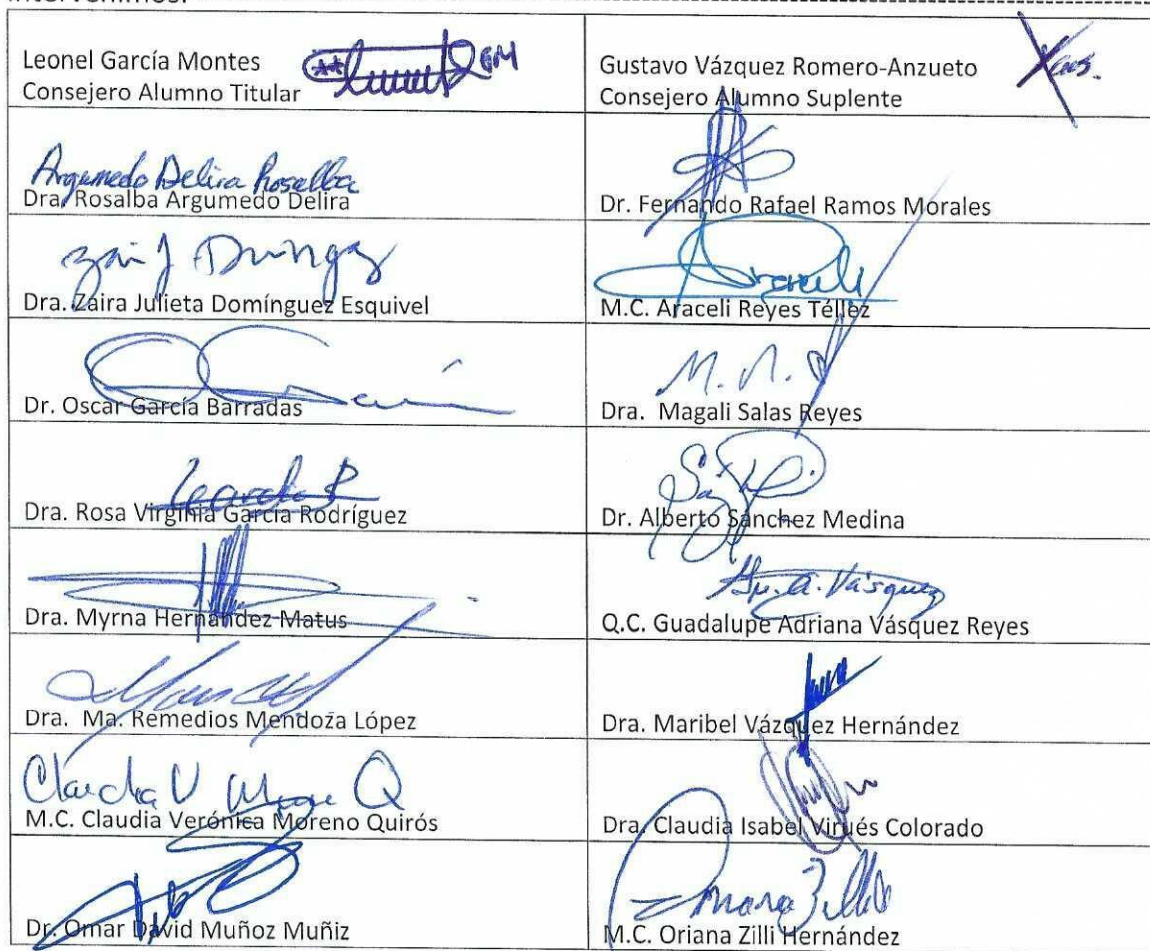 intervenimos.
Leonel García Montes
Consejero Alumno Titular
Gustavo Vázquez Romero-Anzueto
Consejero Alumno Suplente
Argumedo Delira Rosalba
Dra. Rosalba Argumedo Delira
Dr. Fernando Rafael Ramos Morales
Dra. Zaira Julieta Domínguez Esquivel
Araceli
M.C. Araceli Reyes Téllez
Dr. Oscar García Barradas
Dra. Magali Salas Reyes
Dra. Rosa Virginia García Rodríguez
Dr. Alberto Sánchez Medina
Dra. Myrna Hernández Matus
Q.C. Guadalupe Adriana Vásquez Reyes
Dra. Ma. Remedios Mendoza López
Dra. Maribel Vázquez Hernández
Claudia V Q
M.C. Claudia Verónica Moreno Quirós
Dra. Claudia Isabel Virués Colorado
Dr. Omar David Muñoz Muñiz
M.C. Oriana Zilli Hernández